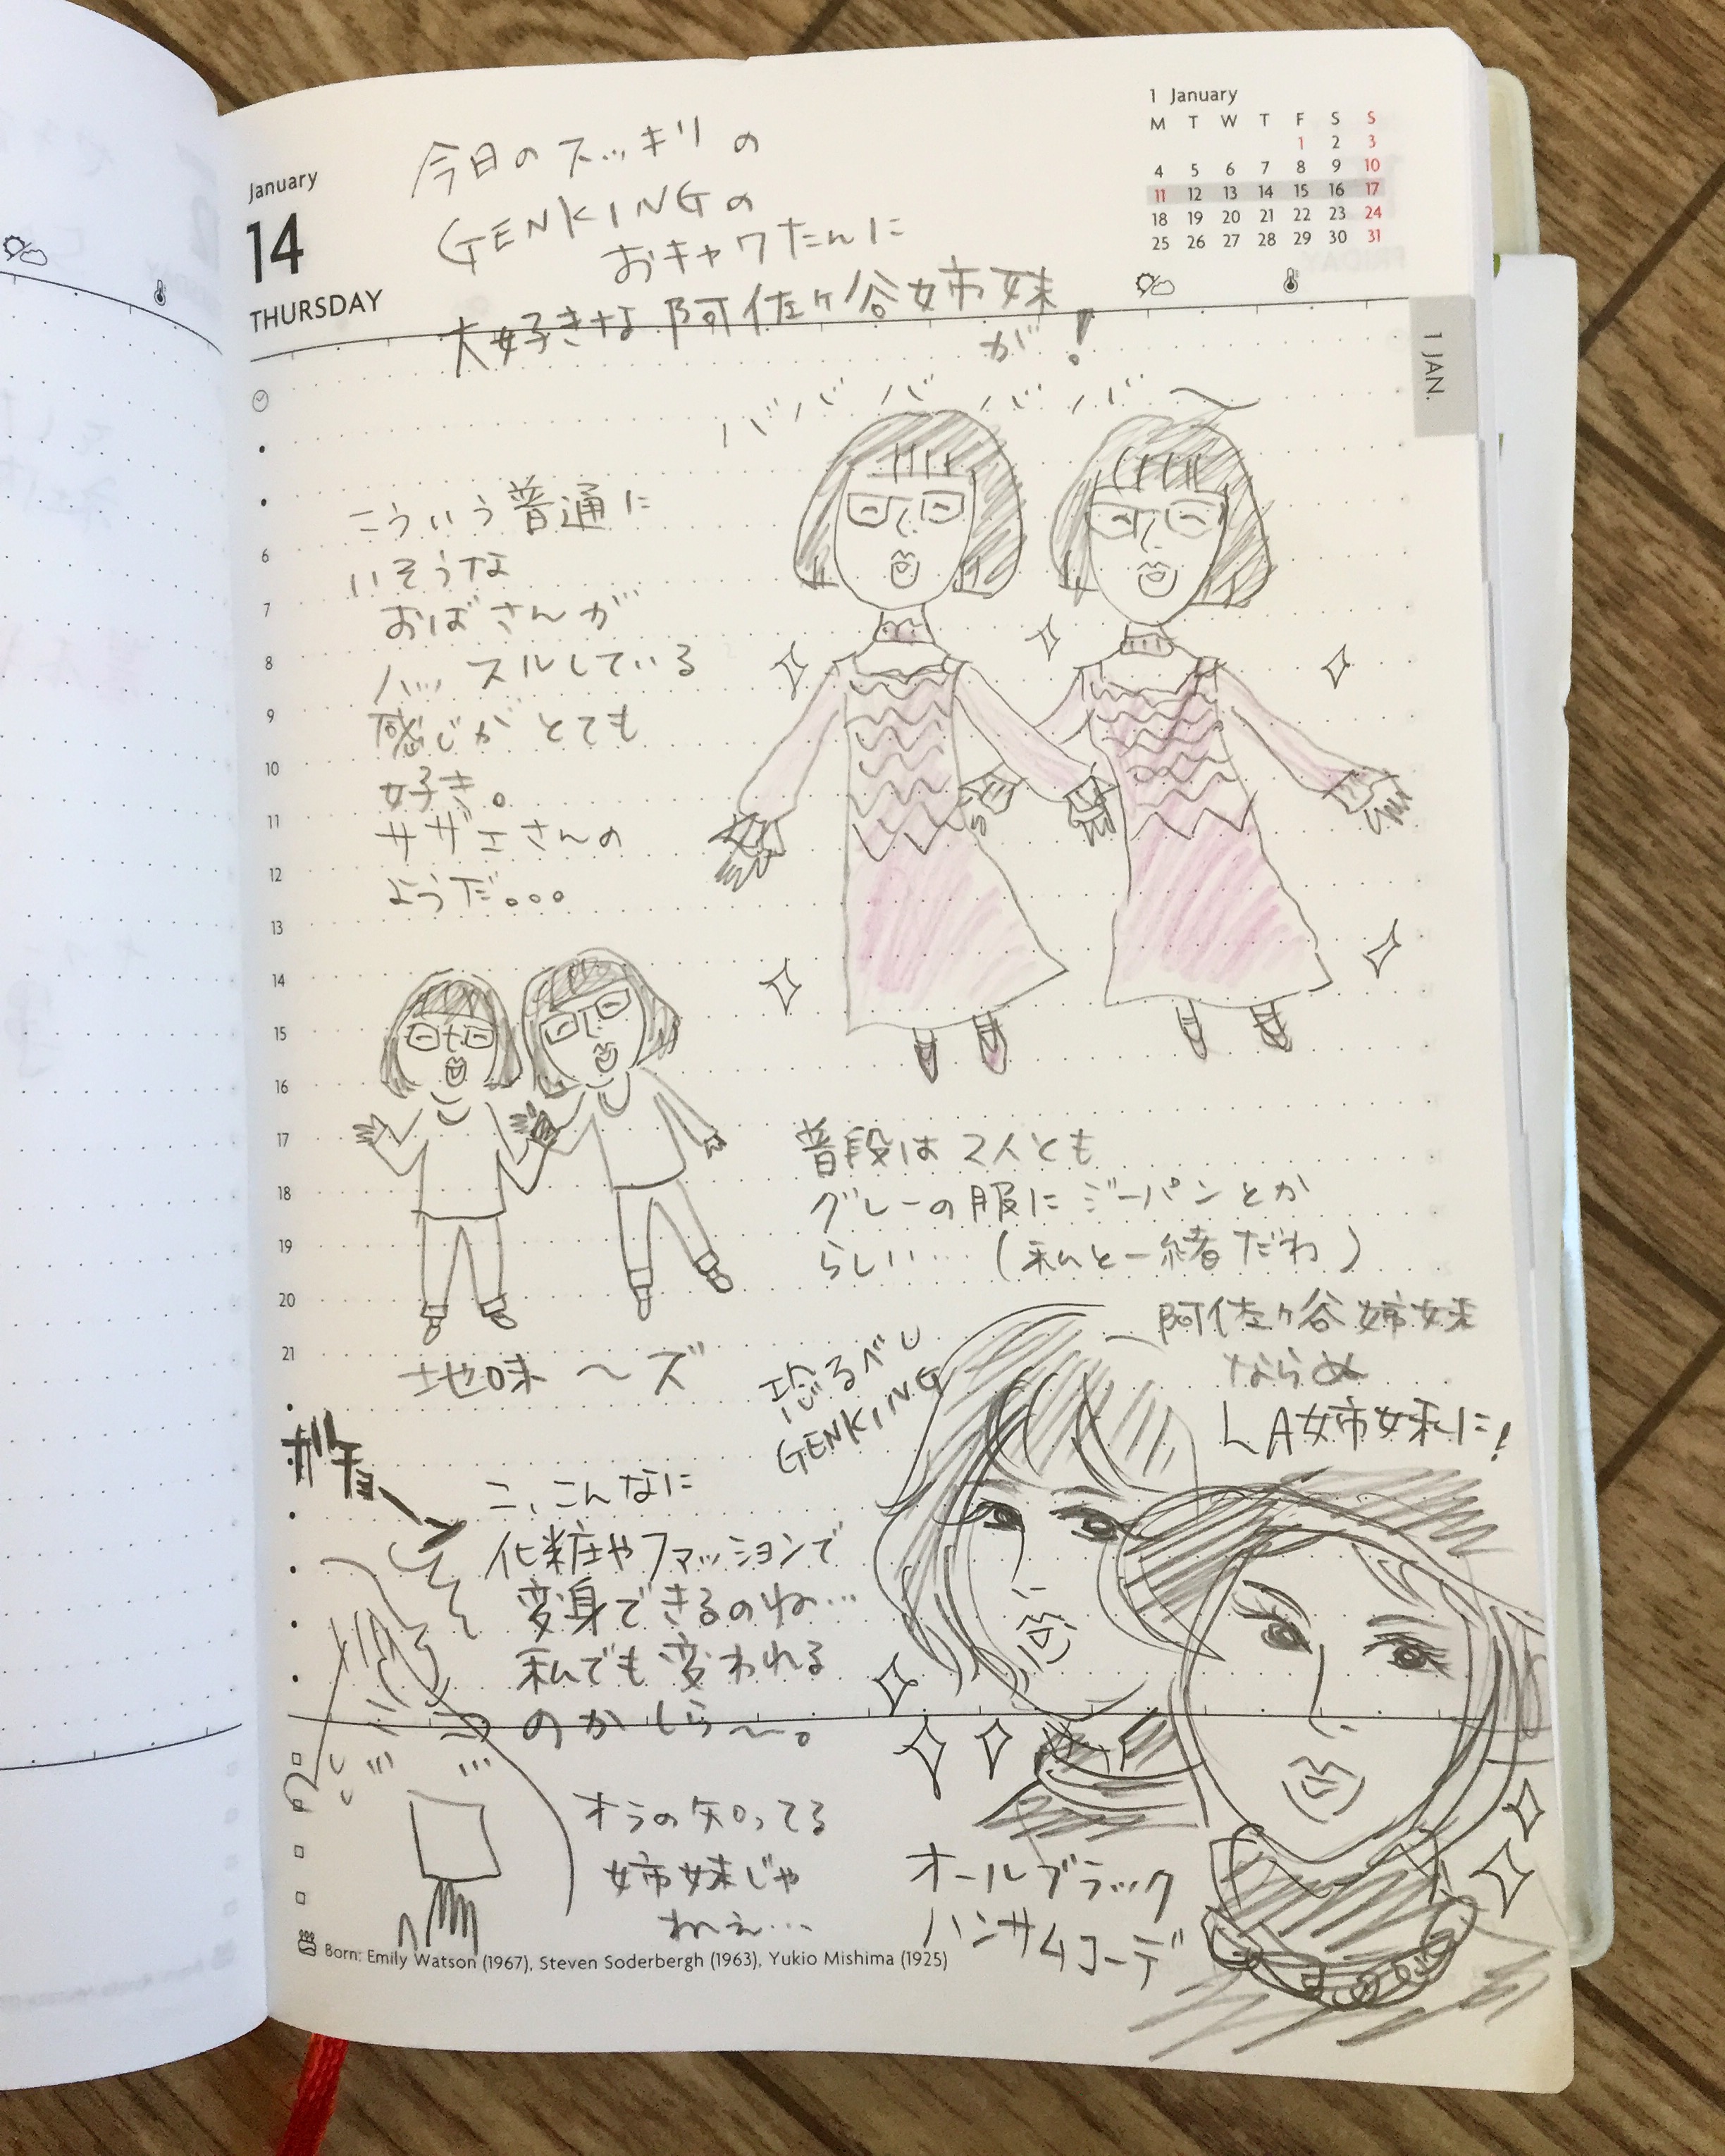 January
14
THURSDAY
1 January
M T W T F S S
1 2 3
4 5 6 7 8 9 10
11 12 13 14 15 16 17
18 19 20 21 22 23 24
25 26 27 28 29 30 31
1 JAN.
今日のスッキリの
GENKINGの
おキャワたんに
大好きな阿佐ヶ谷姉妹
が!
ババババババーン
こういう普通に
いそうな
おばさんが
ハッスルしている
感じがとても
好き。
サザエさんの
ようだ。。。
6
7
8
9
10
11
12
13
14
15
16
17
18
19
20
21
普段は2人とも
グレーの服にジーパンとか
らしい… (私と一緒だわ)
地味〜ズ
恐るべし
GENKING
阿佐ヶ谷姉妹
ならぬ
LA姉妹に!
ガチョーン
こ、こんなに
化粧やファッションで
変身できるのね…
私でも変われる
のかしら〜。
オラの知ってる
姉妹じゃ
ねえ…
オールブラック
ハンサムコーデ
Born: Emily Watson (1967), Steven Soderbergh (1963), Yukio Mishima (1925)